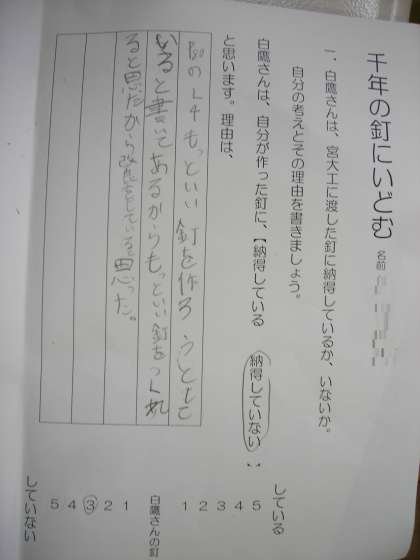 千年の釘にいどむ
名前
一．白鷹さんは、宮大工に渡した釘に納得しているか、いないか。
自分の考えとその理由を書きましょう。
白鷹さんは、自分が作った釘に、【納得している　納得していない】
と思います。理由は、
P80のL4もっといい釘を作ろうとして
いると書いてあるからもっといい釘をつくれ
ると思たから改良をしている。思った。
している
5
4
3
2
1
白鷹さんの釘
1
2
3
4
5
していない